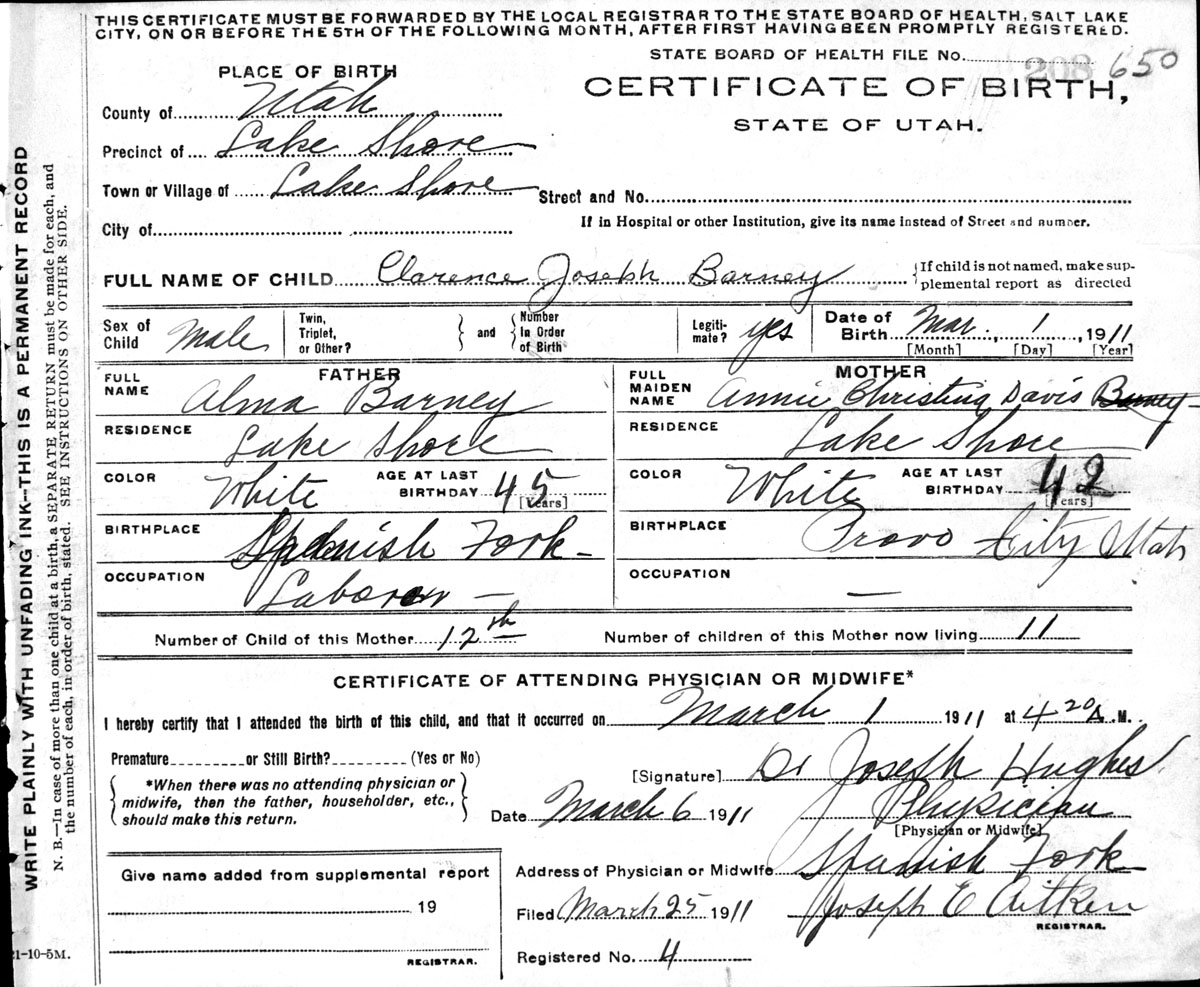 THIS CERTIFICATE MUST BE FORWARDED BY THE LOCAL REGISTRAR TO THE STATE BOARD OF HEALTH, SALT LAKE
CITY, ON OR BEFORE THE 5TH OF THE FOLLOWING MONTH, AFTER FIRST HAVING BEEN PROMPTLY REGISTERED.
STATE BOARD OF HEALTH FILE No. 208 650
PLACE OF BIRTH
CERTIFICATE OF BIRTH,
STATE OF UTAH.
County of Utah
Precinct of Lake Shore
Town or Village of Lake Shore
Street and No.
City of
If in Hospital or other Institution, give its name instead of Street and number.
FULL NAME OF CHILD Clarence Joseph Barney
{If child is not named, make sup-
plemental report as directed
Sex of Child Male
Twin, Triplet, or Other? } and { Number In Order of Birth
Legiti-mate? yes
Date of Birth Mar. 1, 1911
[Month] [Day] [Year]
FATHER
FULL NAME Alma Barney
RESIDENCE Lake Shore
COLOR White AGE AT LAST BIRTHDAY 45 [Years]
BIRTHPLACE Spanish Fork
OCCUPATION Laborer —
MOTHER
FULL MAIDEN NAME Annie Christina Davis Barney
RESIDENCE Lake Shore
COLOR White AGE AT LAST BIRTHDAY 42 [Years]
BIRTHPLACE Provo City Utah
OCCUPATION —
Number of Child of this Mother 12th Number of children of this Mother now living 11
CERTIFICATE OF ATTENDING PHYSICIAN OR MIDWIFE*
I hereby certify that I attended the birth of this child, and that it occurred on March 1 1911 at 4 20 A.M.
Premature or Still Birth? (Yes or No)
{ *When there was no attending physician or
midwife, then the father, householder, etc.,
should make this return. }
[Signature] Dr Joseph Hughes
Date March 6 1911 Physician
[Physician or Midwife]
Address of Physician or Midwife Spanish Fork
Filed March 25 1911 Joseph E Aitken
REGISTRAR.
Registered No. 4
Give name added from supplemental report
19
REGISTRAR.
WRITE PLAINLY WITH UNFADING INK--THIS IS A PERMANENT RECORD
N. B.—In case of more than one child at a birth, a SEPARATE RETURN must be made for each, and
the number of each, in order of birth, stated. SEE INSTRUCTIONS ON OTHER SIDE.
21-10-5M.